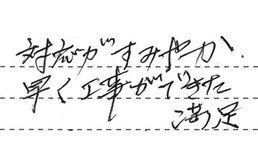 対応がすみやか、
早く工事ができた
満足